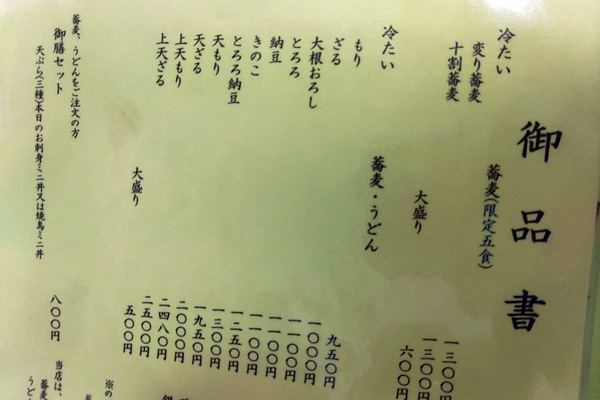 御品書
冷たい 蕎麦(限定五食)
変り蕎麦 一三〇〇円
十割蕎麦 一三〇〇円
大盛り 六〇〇円
冷たい 蕎麦・うどん
もり 九五〇円
ざる 一〇〇〇円
大根おろし 一一〇〇円
とろろ 一一〇〇円
納豆 一一〇〇円
きのこ 一二五〇円
とろろ納豆 一三〇〇円
天もり 一九五〇円
天ざる 二〇〇〇円
上天もり 二四八〇円
上天ざる 二五〇〇円
大盛り 五〇〇円
蕎麦、うどんをご注文の方
御膳セット 八〇〇円
天ぷら(三種)本日のお刺身ミニ丼又は焼鳥ミニ丼
※の
当店は、
蕎麦
うど